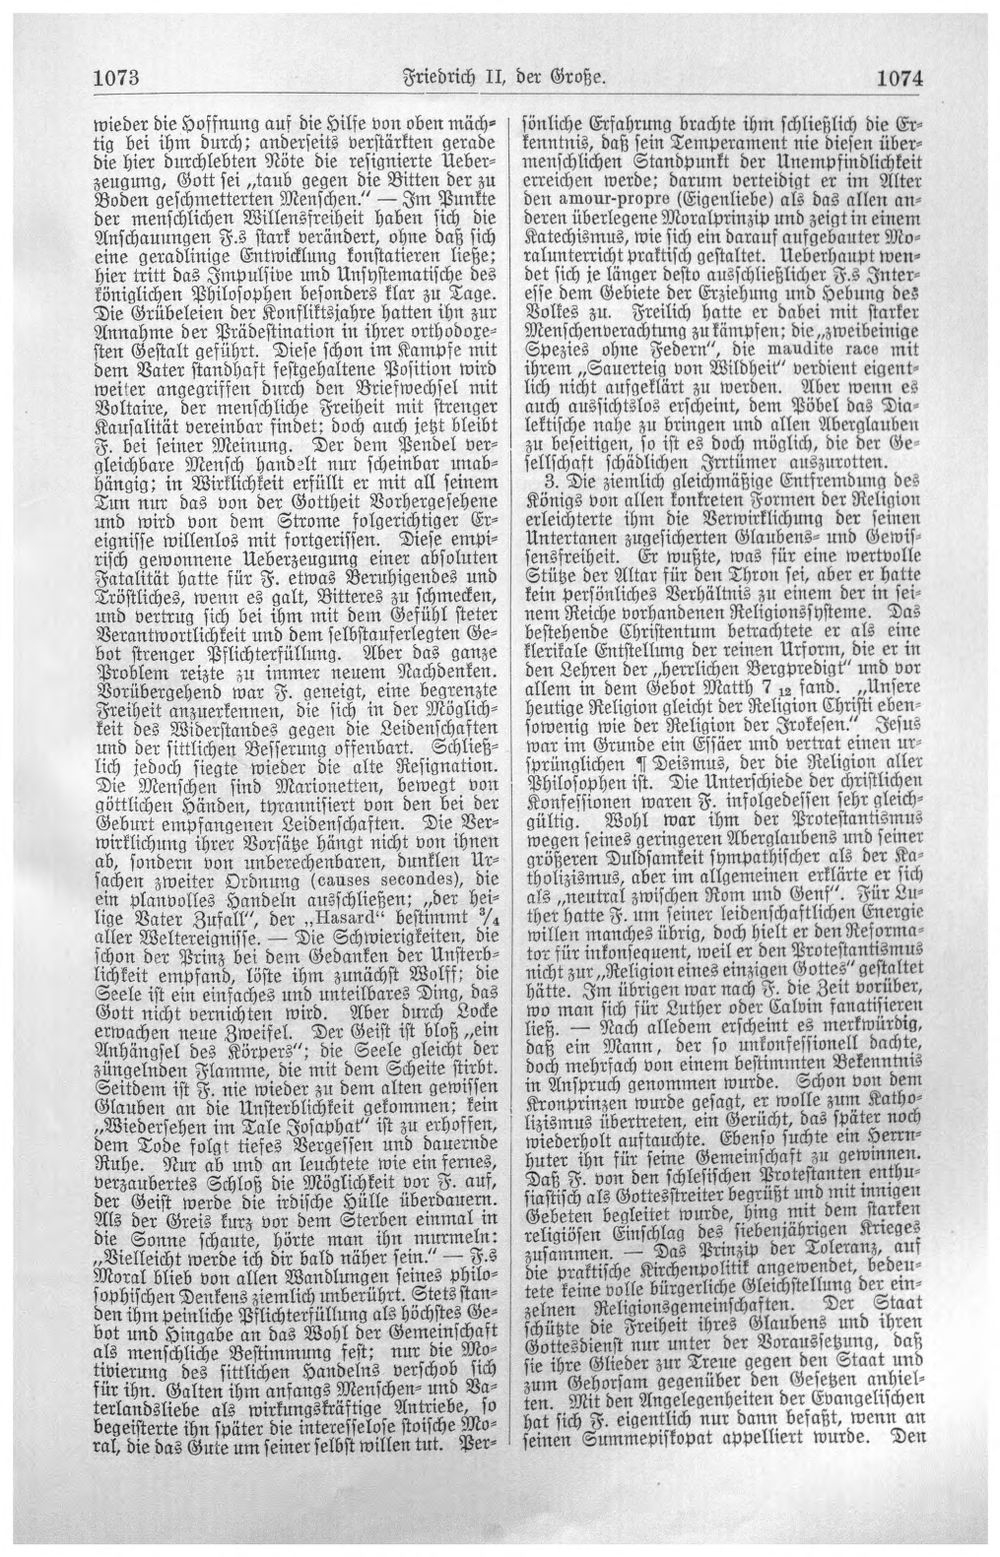 1073
Friedrich II, der Große.
1074
wieder die Hoffnung auf die Hilfe von oben mäch-
tig bei ihm durch; anderseits verstärkten gerade
die hier durchlebten Nöte die resignierte Ueber-
zeugung, Gott sei „taub gegen die Bitten der zu
Boden geschmetterten Menschen.“ — Im Punkte
der menschlichen Willensfreiheit haben sich die
Anschauungen F.s stark verändert, ohne daß sich
eine geradlinige Entwicklung konstatieren ließe;
hier tritt das Impulsive und Unsystematische des
königlichen Philosophen besonders klar zu Tage.
Die Grübeleien der Konfliktsjahre hatten ihn zur
Annahme der Prädestination in ihrer orthodoxe-
sten Gestalt geführt. Diese schon im Kampfe mit
dem Vater standhaft festgehaltene Position wird
weiter angegriffen durch den Briefwechsel mit
Voltaire, der menschliche Freiheit mit strenger
Kausalität vereinbar findet; doch auch jetzt bleibt
F. bei seiner Meinung. Der dem Pendel ver-
gleichbare Mensch handelt nur scheinbar unab-
hängig; in Wirklichkeit erfüllt er mit all seinem
Tun nur das von der Gottheit Vorhergesehene
und wird von dem Strome folgerichtiger Er-
eignisse willenlos mit fortgerissen. Diese empi-
risch gewonnene Ueberzeugung einer absoluten
Fatalität hatte für F. etwas Beruhigendes und
Tröstliches, wenn es galt, Bitteres zu schmecken,
und vertrug sich bei ihm mit dem Gefühl steter
Verantwortlichkeit und dem selbstauferlegten Ge-
bot strenger Pflichterfüllung. Aber das ganze
Problem reizte zu immer neuem Nachdenken.
Vorübergehend war F. geneigt, eine begrenzte
Freiheit anzuerkennen, die sich in der Möglich-
keit des Widerstandes gegen die Leidenschaften
und der sittlichen Besserung offenbart. Schließ-
lich jedoch siegte wieder die alte Resignation.
Die Menschen sind Marionetten, bewegt von
göttlichen Händen, tyrannisiert von den bei der
Geburt empfangenen Leidenschaften. Die Ver-
wirklichung ihrer Vorsätze hängt nicht von ihnen
ab, sondern von unberechenbaren, dunklen Ur-
sachen zweiter Ordnung (causes secondes), die
ein planvolles Handeln ausschließen; „der hei-
lige Vater Zufall“, der „Hasard“ bestimmt ¾
aller Weltereignisse. — Die Schwierigkeiten, die
schon der Prinz bei dem Gedanken der Unsterb-
lichkeit empfand, löste ihm zunächst Wolff; die
Seele ist ein einfaches und unteilbares Ding, das
Gott nicht vernichten wird. Aber durch Locke
erwachen neue Zweifel. Der Geist ist bloß „ein
Anhängsel des Körpers“; die Seele gleicht der
züngelnden Flamme, die mit dem Scheite stirbt.
Seitdem ist F. nie wieder zu dem alten gewissen
Glauben an die Unsterblichkeit gekommen; kein
„Wiedersehen im Tale Josaphat“ ist zu erhoffen,
dem Tode folgt tiefes Vergessen und dauernde
Ruhe. Nur ab und an leuchtete wie ein fernes,
verzaubertes Schloß die Möglichkeit vor F. auf,
der Geist werde die irdische Hülle überdauern.
Als der Greis kurz vor dem Sterben einmal in
die Sonne schaute, hörte man ihn murmeln:
„Vielleicht werde ich dir bald näher sein.“ — F.s
Moral blieb von allen Wandlungen seines philo-
sophischen Denkens ziemlich unberührt. Stets stan-
den ihm peinliche Pflichterfüllung als höchstes Ge-
bot und Hingabe an das Wohl der Gemeinschaft
als menschliche Bestimmung fest; nur die Mo-
tivierung des sittlichen Handelns verschob sich
für ihn. Galten ihm anfangs Menschen- und Va-
terlandsliebe als wirkungskräftige Antriebe, so
begeisterte ihn später die interesselose stoische Mo-
ral, die das Gute um seiner selbst willen tut. Per-
sönliche Erfahrung brachte ihm schließlich die Er-
kenntnis, daß sein Temperament nie diesen über-
menschlichen Standpunkt der Unempfindlichkeit
erreichen werde; darum verteidigt er im Alter
den amour-propre (Eigenliebe) als das allen an-
deren überlegene Moralprinzip und zeigt in einem
Katechismus, wie sich ein darauf aufgebauter Mo-
ralunterricht praktisch gestaltet. Ueberhaupt wen-
det sich je länger desto ausschließlicher F.s Inter-
esse dem Gebiete der Erziehung und Hebung des
Volkes zu. Freilich hatte er dabei mit starker
Menschenverachtung zu kämpfen; die „zweibeinige
Spezies ohne Federn“, die maudite race mit
ihrem „Sauerteig von Wildheit“ verdient eigent-
lich nicht aufgeklärt zu werden. Aber wenn es
auch aussichtslos erscheint, dem Pöbel das Dia-
lektische nahe zu bringen und allen Aberglauben
zu beseitigen, so ist es doch möglich, die der Ge-
sellschaft schädlichen Irrtümer auszurotten.
3. Die ziemlich gleichmäßige Entfremdung des
Königs von allen konkreten Formen der Religion
erleichterte ihm die Verwirklichung der seinen
Untertanen zugesicherten Glaubens- und Gewis-
sensfreiheit. Er wußte, was für eine wertvolle
Stütze der Altar für den Thron sei, aber er hatte
kein persönliches Verhältnis zu einem der in sei-
nem Reiche vorhandenen Religionssysteme. Das
bestehende Christentum betrachtete er als eine
klerikale Entstellung der reinen Urform, die er in
den Lehren der „herrlichen Bergpredigt“ und vor
allem in dem Gebot Matth 7 12 fand. „Unsere
heutige Religion gleicht der Religion Christi eben-
sowenig wie der Religion der Irokesen.“ Jesus
war im Grunde ein Essäer und vertrat einen ur-
sprünglichen ¶ Deismus, der die Religion aller
Philosophen ist. Die Unterschiede der christlichen
Konfessionen waren F. infolgedessen sehr gleich-
gültig. Wohl war ihm der Protestantismus
wegen seines geringeren Aberglaubens und seiner
größeren Duldsamkeit sympathischer als der Ka-
tholizismus, aber im allgemeinen erklärte er sich
als „neutral zwischen Rom und Genf“. Für Lu-
ther hatte F. um seiner leidenschaftlichen Energie
willen manches übrig, doch hielt er den Reforma-
tor für inkonsequent, weil er den Protestantismus
nicht zur „Religion eines einzigen Gottes“ gestaltet
hätte. Im übrigen war nach F. die Zeit vorüber,
wo man sich für Luther oder Calvin fanatisieren
ließ. — Nach alledem erscheint es merkwürdig,
daß ein Mann, der so unkonfessionell dachte,
doch mehrfach von einem bestimmten Bekenntnis
in Anspruch genommen wurde. Schon von dem
Kronprinzen wurde gesagt, er wolle zum Katho-
lizismus übertreten, ein Gerücht, das später noch
wiederholt auftauchte. Ebenso suchte ein Herrn-
huter ihn für seine Gemeinschaft zu gewinnen.
Daß F. von den schlesischen Protestanten enthu-
siastisch als Gottesstreiter begrüßt und mit innigen
Gebeten begleitet wurde, hing mit dem starken
religiösen Einschlag des siebenjährigen Krieges
zusammen. — Das Prinzip der Toleranz, auf
die praktische Kirchenpolitik angewendet, bedeu-
tete keine volle bürgerliche Gleichstellung der ein-
zelnen Religionsgemeinschaften. Der Staat
schützte die Freiheit ihres Glaubens und ihren
Gottesdienst nur unter der Voraussetzung, daß
sie ihre Glieder zur Treue gegen den Staat und
zum Gehorsam gegenüber den Gesetzen anhiel-
ten. Mit den Angelegenheiten der Evangelischen
hat sich F. eigentlich nur dann befaßt, wenn an
seinen Summepiskopat appelliert wurde. Den